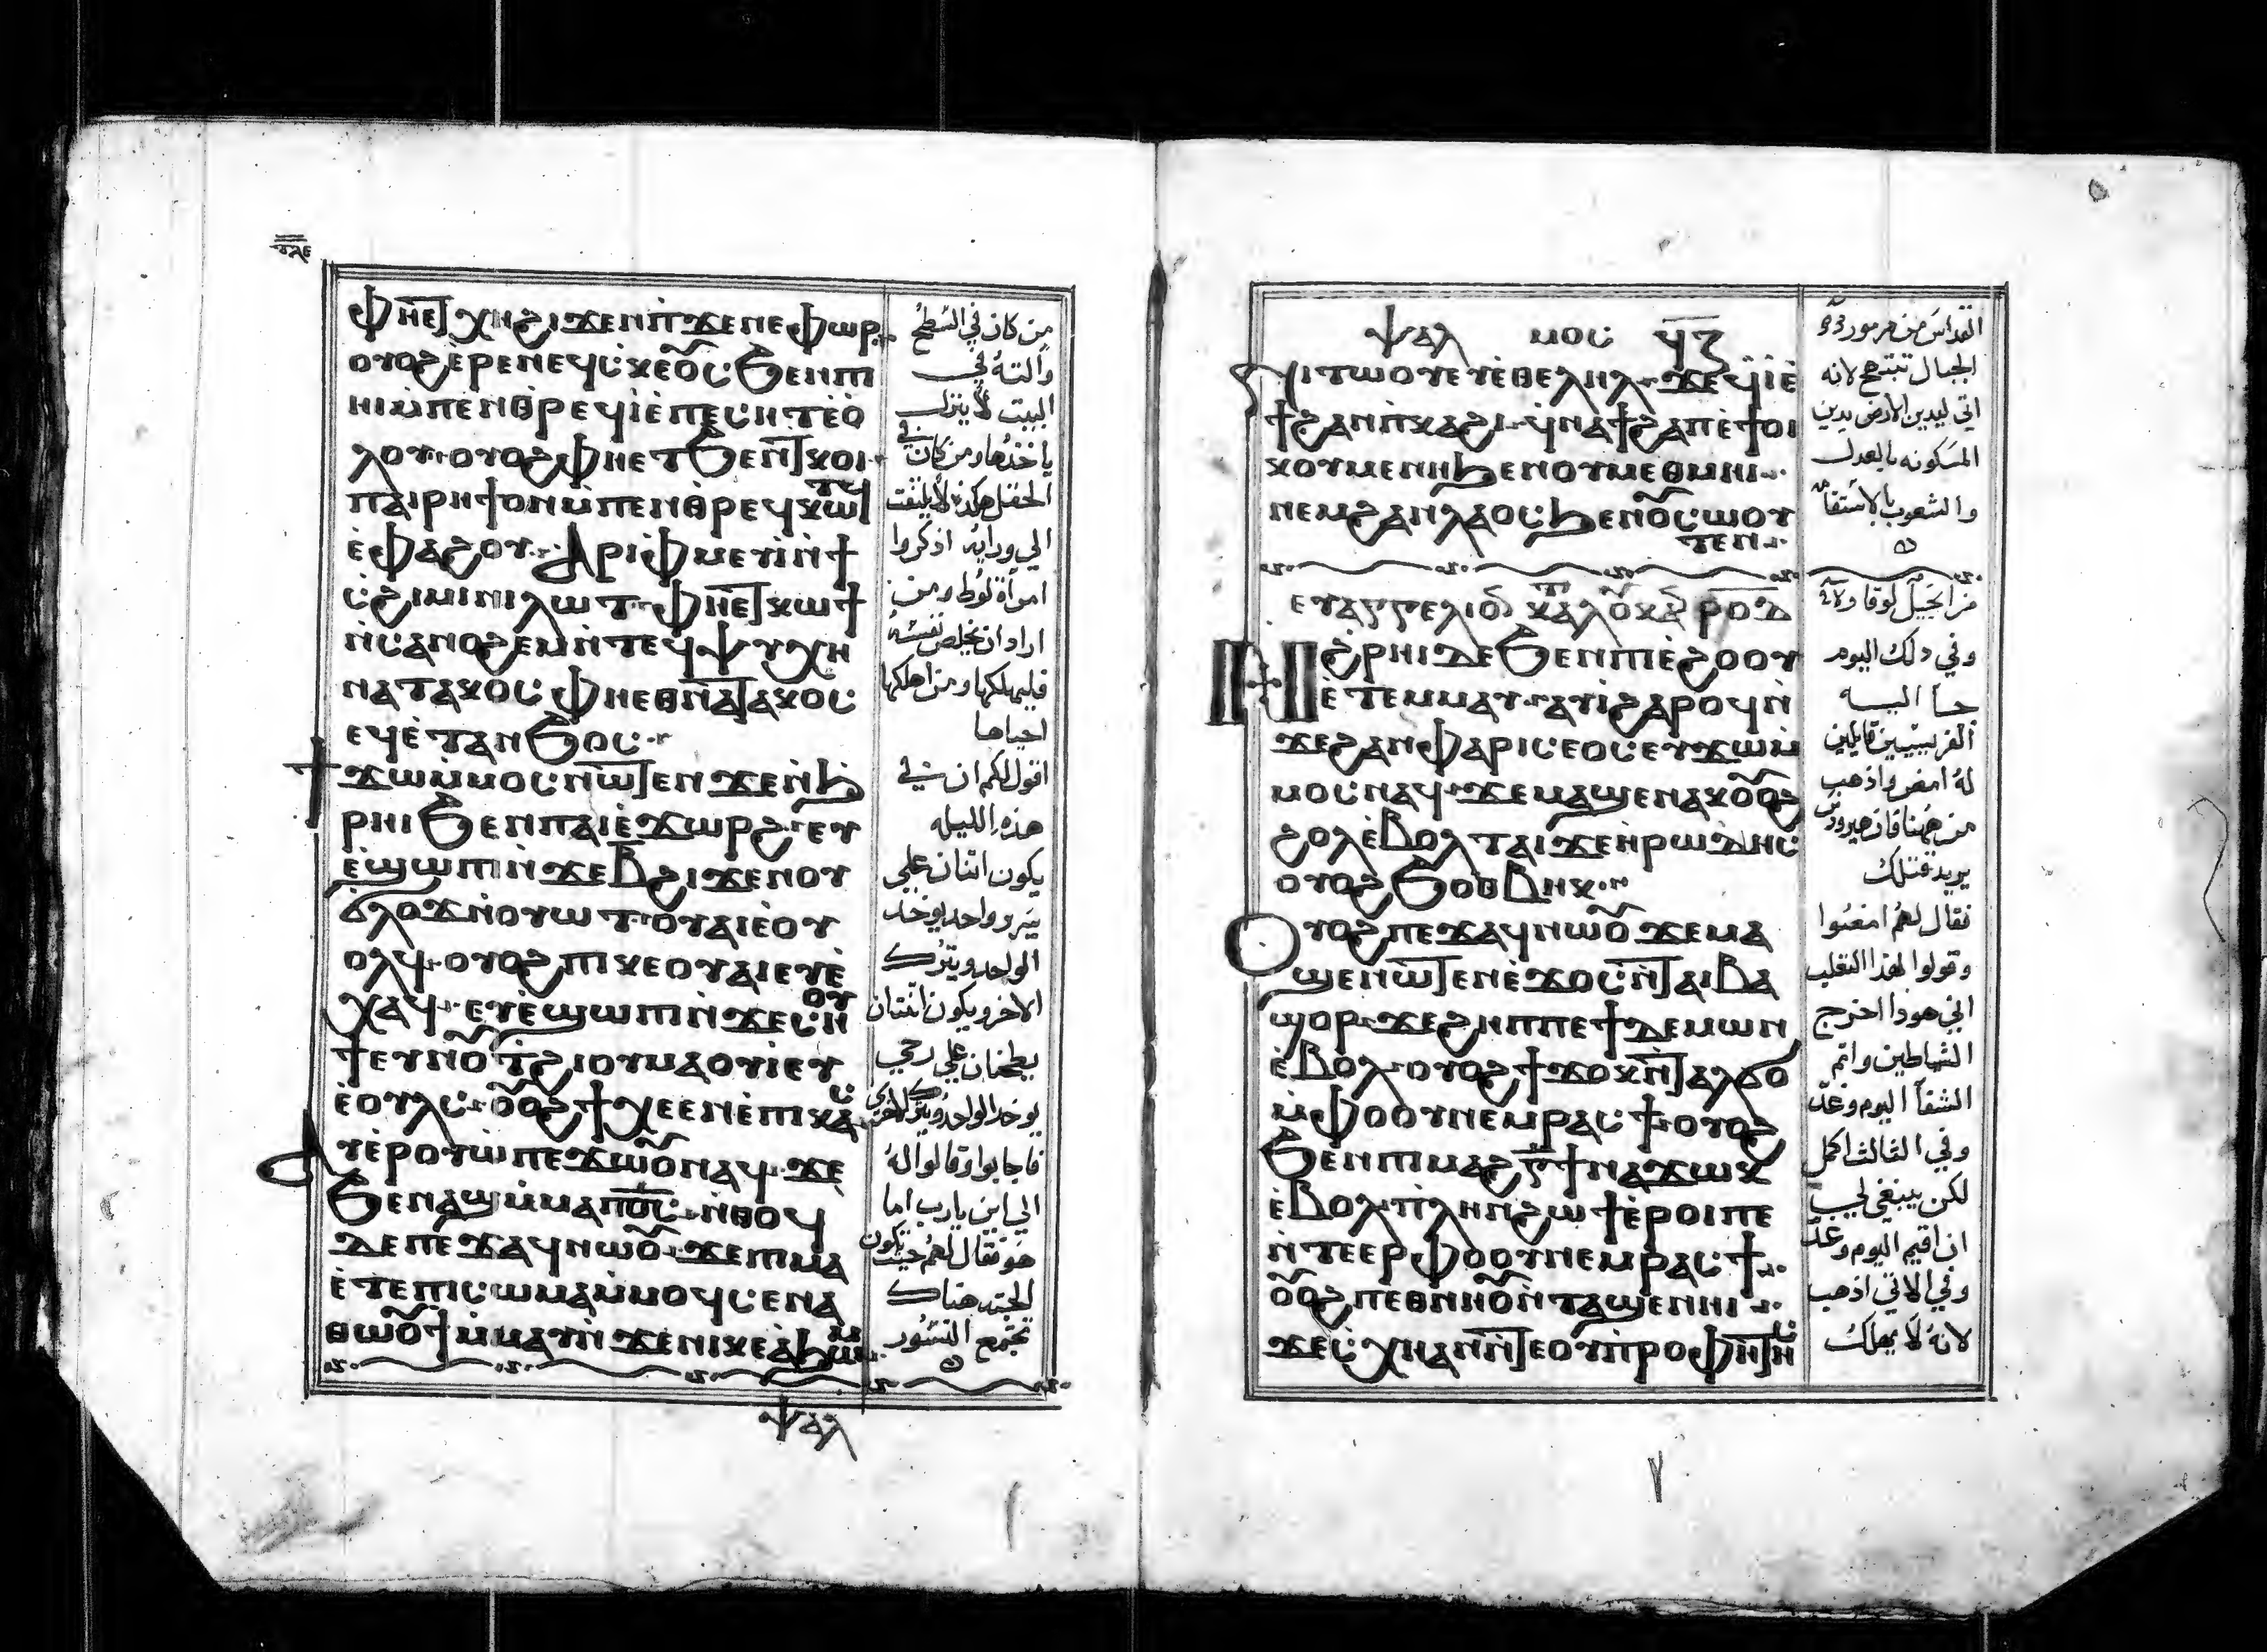 ⲫⲏⲉⲧⲭⲏϩⲓϫⲉⲛⲡϫⲉⲛⲉⲫⲱⲣ
ⲟⲩⲟϩⲉ̀ⲣⲉⲛⲉϥⲥⲕⲉⲟ̅ⲥϧⲉⲛⲡⲓ
ⲏⲓⲙ̀ⲡⲉⲛⲑⲣⲉϥⲓ̀ⲉ̀ⲡⲉⲥⲏⲧⲉ̀ⲟ̀
ⲗⲟⲩ ⲟⲩⲟϩⲫⲏⲉⲧϧⲉⲛⲧⲕⲟⲓ
ⲡⲁⲓⲣⲏϯⲟⲛⲙ̀ⲡⲉⲛⲑⲣⲉϥⲕⲱⲧϥ
ⲉ̀ⲫⲁϩⲟⲩ ⲁⲣⲓⲫⲙⲉⲩⲓ̀ⲛ̀ϯ
ⲥ̀ϩⲓⲙⲓⲛⲓⲗⲱⲧ ⲫⲏⲉⲧⲕⲱϯ
ⲛ̀ⲥⲁⲛⲟϩⲉⲙⲛ̀ⲧⲉϥⲯⲩⲭⲏ
ⲛⲁⲧⲁⲕⲟⲥ ⲫⲏⲉⲑⲛⲁⲧⲁⲕⲟⲥ
ⲉϥⲉ̀ⲧⲁⲛϧⲟⲥ
ϯϫⲱⲙ̀ⲙⲟⲥⲛⲱⲧⲉⲛ ϫⲉⲛ̀ϩ
ⲣⲏⲓϧⲉⲛⲡⲁⲓⲉ̀ϫⲱⲣϩ ⲉⲩ
ⲉ̀ϣⲱⲡⲓⲛ̀ϫⲉⲃ̅ϩⲓϫⲉⲛⲟⲩ
ϭⲗⲟϫⲛ̀ⲟⲩⲱⲧ ⲟⲩⲁⲓⲉ̀ⲟⲩ
ⲟⲗϥ ⲟⲩⲟϩⲡⲓⲕⲉⲟⲩⲁⲓⲉⲩⲉ̀
ⲭⲁϥ ⲉⲩⲉ̀ϣⲱⲡⲓⲛ̀ϫⲉⲥⲛⲟⲩ
ϯⲉⲩⲛⲟ̅ⲧϩⲓⲟⲩⲙⲁⲟⲩⲓ̀ⲉⲩ
ⲉ̀ⲟⲩⲗⲥ ⲟ̅ⲟϩϯⲭⲉⲉⲛⲉ̀ⲡⲓⲭⲁⲥ
ⲁⲩⲉ̀ⲣⲟⲩⲱ̀ⲡⲉϫⲱⲟ̅ⲛⲁϥ ϫⲉ
ϧⲉⲛⲁϣⲙ̀ⲙⲁⲡⲟ̅ⲥ ⲛ̀ⲑⲟϥ
ⲇⲉⲡⲉϫⲁϥⲛⲱⲟ̅ ϫⲉⲡⲓⲙⲁ
ⲉ̀ⲧⲉⲡⲓⲥⲱⲙⲁⲙ̀ⲙⲟϥⲥⲉⲛⲁ
ⲑⲱⲟ̅ϯⲙ̀ⲙⲁⲩⲛ̀ϫⲉⲛⲓⲕⲉⲁϧⲱⲙ
ⲯⲁⲗ
من كان في السطح
والته في
البيت لا ينزل
ياخذها ومن كان في
الحقل هكذا لا يلتفت
الي ورايه اذكروا
امراة لوط ومن
اراد ان يخلص نفسه
فليهلكها ومن اهلكها
احياها
اقول لكم ان في
هذه الليله
يكون اتنان علي
سرير واحد يوخد
الواحد ويترك
الاخر ويكون اثنتان
يطحنان علي رحي
يوخد الواحد ويترك الاخري
فاجابوا وقالوا له
الي اين يارب اما
هو فقال لهم حيث يكون
الجته هناك
تجتمع النسور
ⲯⲁⲗⲙⲟⲥ ϥ̅ⲍ̅
ⲛⲓⲧⲱⲟⲩⲉⲩⲉ̀ⲑⲉⲗⲏⲗ ϫⲉϥⲓ̀ⲉ̀
ϯϩⲁⲡⲛ̀ⲕⲁϩⲓ ϥ̀ⲛⲁϯϩⲁⲡⲉ̀ϯⲟⲓ
ⲕⲟⲩⲙⲉⲛⲏϧⲉⲛⲟⲩⲙⲉⲑⲙⲏⲓ
ⲛⲉⲙϩⲁⲛⲗⲁⲟⲥϧⲉⲛⲟ̅ⲥⲱⲟⲩ
ⲧⲉⲛ
ⲉⲩⲁⲅⲅⲉⲗⲓⲟ ⲕⲁⲗⲟⲕⲁ ⲣⲟⲇ
ⲛϩ̀ⲣⲏⲓⲇⲉϧⲉⲛⲡⲓⲉ̀ϩⲟⲟⲩ
ⲉ̀ⲧⲉⲙⲙⲁⲩ ⲁⲩⲓ̀ϩⲁⲣⲟϥⲛ̀
ϫⲉϩⲁⲛⲫⲁⲣⲓⲥⲉⲟⲥⲉⲩϫⲱⲙ̀
ⲙⲟⲥⲛⲁϥ ϫⲉⲙⲁϣⲉⲛⲁⲕⲟ̅ⲟϩ
ϩⲟⲗⲉ̀ⲃⲟⲗⲧⲁⲓϫⲉⲏⲣⲱⲇⲏⲥ
ⲟⲩⲟϩϧⲟⲑⲃⲏⲕ
ⲟⲩⲟϩⲡⲉϫⲁϥⲛⲱⲟ̅ ϫⲉⲙⲁ
ϣⲉⲛⲱⲧⲉⲛⲉ̀ϫⲟⲥⲛ̀ⲧⲁⲓⲃⲁ
ϣⲟⲣ ϫⲉϩⲏⲡⲡⲉϯⲇⲉⲙⲱⲛ
ⲉ̀ⲃⲟⲗ ⲟⲩⲟϩϯϫⲟⲕⲛ̀ⲧⲁⲗϭⲟ
ⲙ̀ⲫⲟⲟⲩⲛⲉⲙⲣⲁⲥϯ ⲟⲩⲟϩ
ϧⲉⲛⲡⲓⲙⲁϩⲅ̅ϯⲛⲁϫⲱⲕ
ⲉ̀ⲃⲟⲗ ⲡⲗⲏⲛϩⲱϯⲉ̀ⲣⲟⲓⲡⲉ
ⲛ̀ⲧⲉⲉⲣⲫⲟⲟⲩⲛⲉⲙⲣⲁⲥϯ
ⲟ̅ⲟϩⲡⲉⲑⲛⲏⲟ̅ⲛ̀ⲧⲁϣⲉⲛⲏⲓ
ϫⲉⲥⲭⲏⲁⲛⲛ̀ⲧⲉⲟⲩⲡⲣⲟⲫⲏⲧⲏⲥ
القداس من مزمور
الجبال تبتهج لانه
اتي ليدين الارض يدين
المسكونه بالعدل
والشعوب بالاستقامه
من انجيل لوقا
وفي دلك اليوم
جا اليه
الفريسيين قايلين
له امض واذهب
من ههنا فان هيرودس
يريد قتلك
فقال لهم امضوا
وقولوا لهذا الثعلب
اني هودا اخرج
الشياطين واتم
الشفا اليوم وغدا
وفي الثالث اكمل
لكن ينبغي لي
ان اقيم اليوم وغدا
وفي الاتي اذهب
لانه لا يهلك
٧